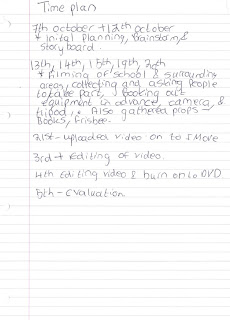 Time plan
7th october + 12th october
* Inital Planning, Brainstorm &
storyboard.
13th, 14th, 15th, 19th, 20th
* Filming of school & surrounding
areas, collecting and asking people
to take part, booking out
equipment in advance, camera, &
tripod,. Also gathered props -
Books, Frisbee.
21st - uploaded video on to iMove
3rd - Editing of video.
4th Editing video & burn on to DVD
5th - Evaluation.